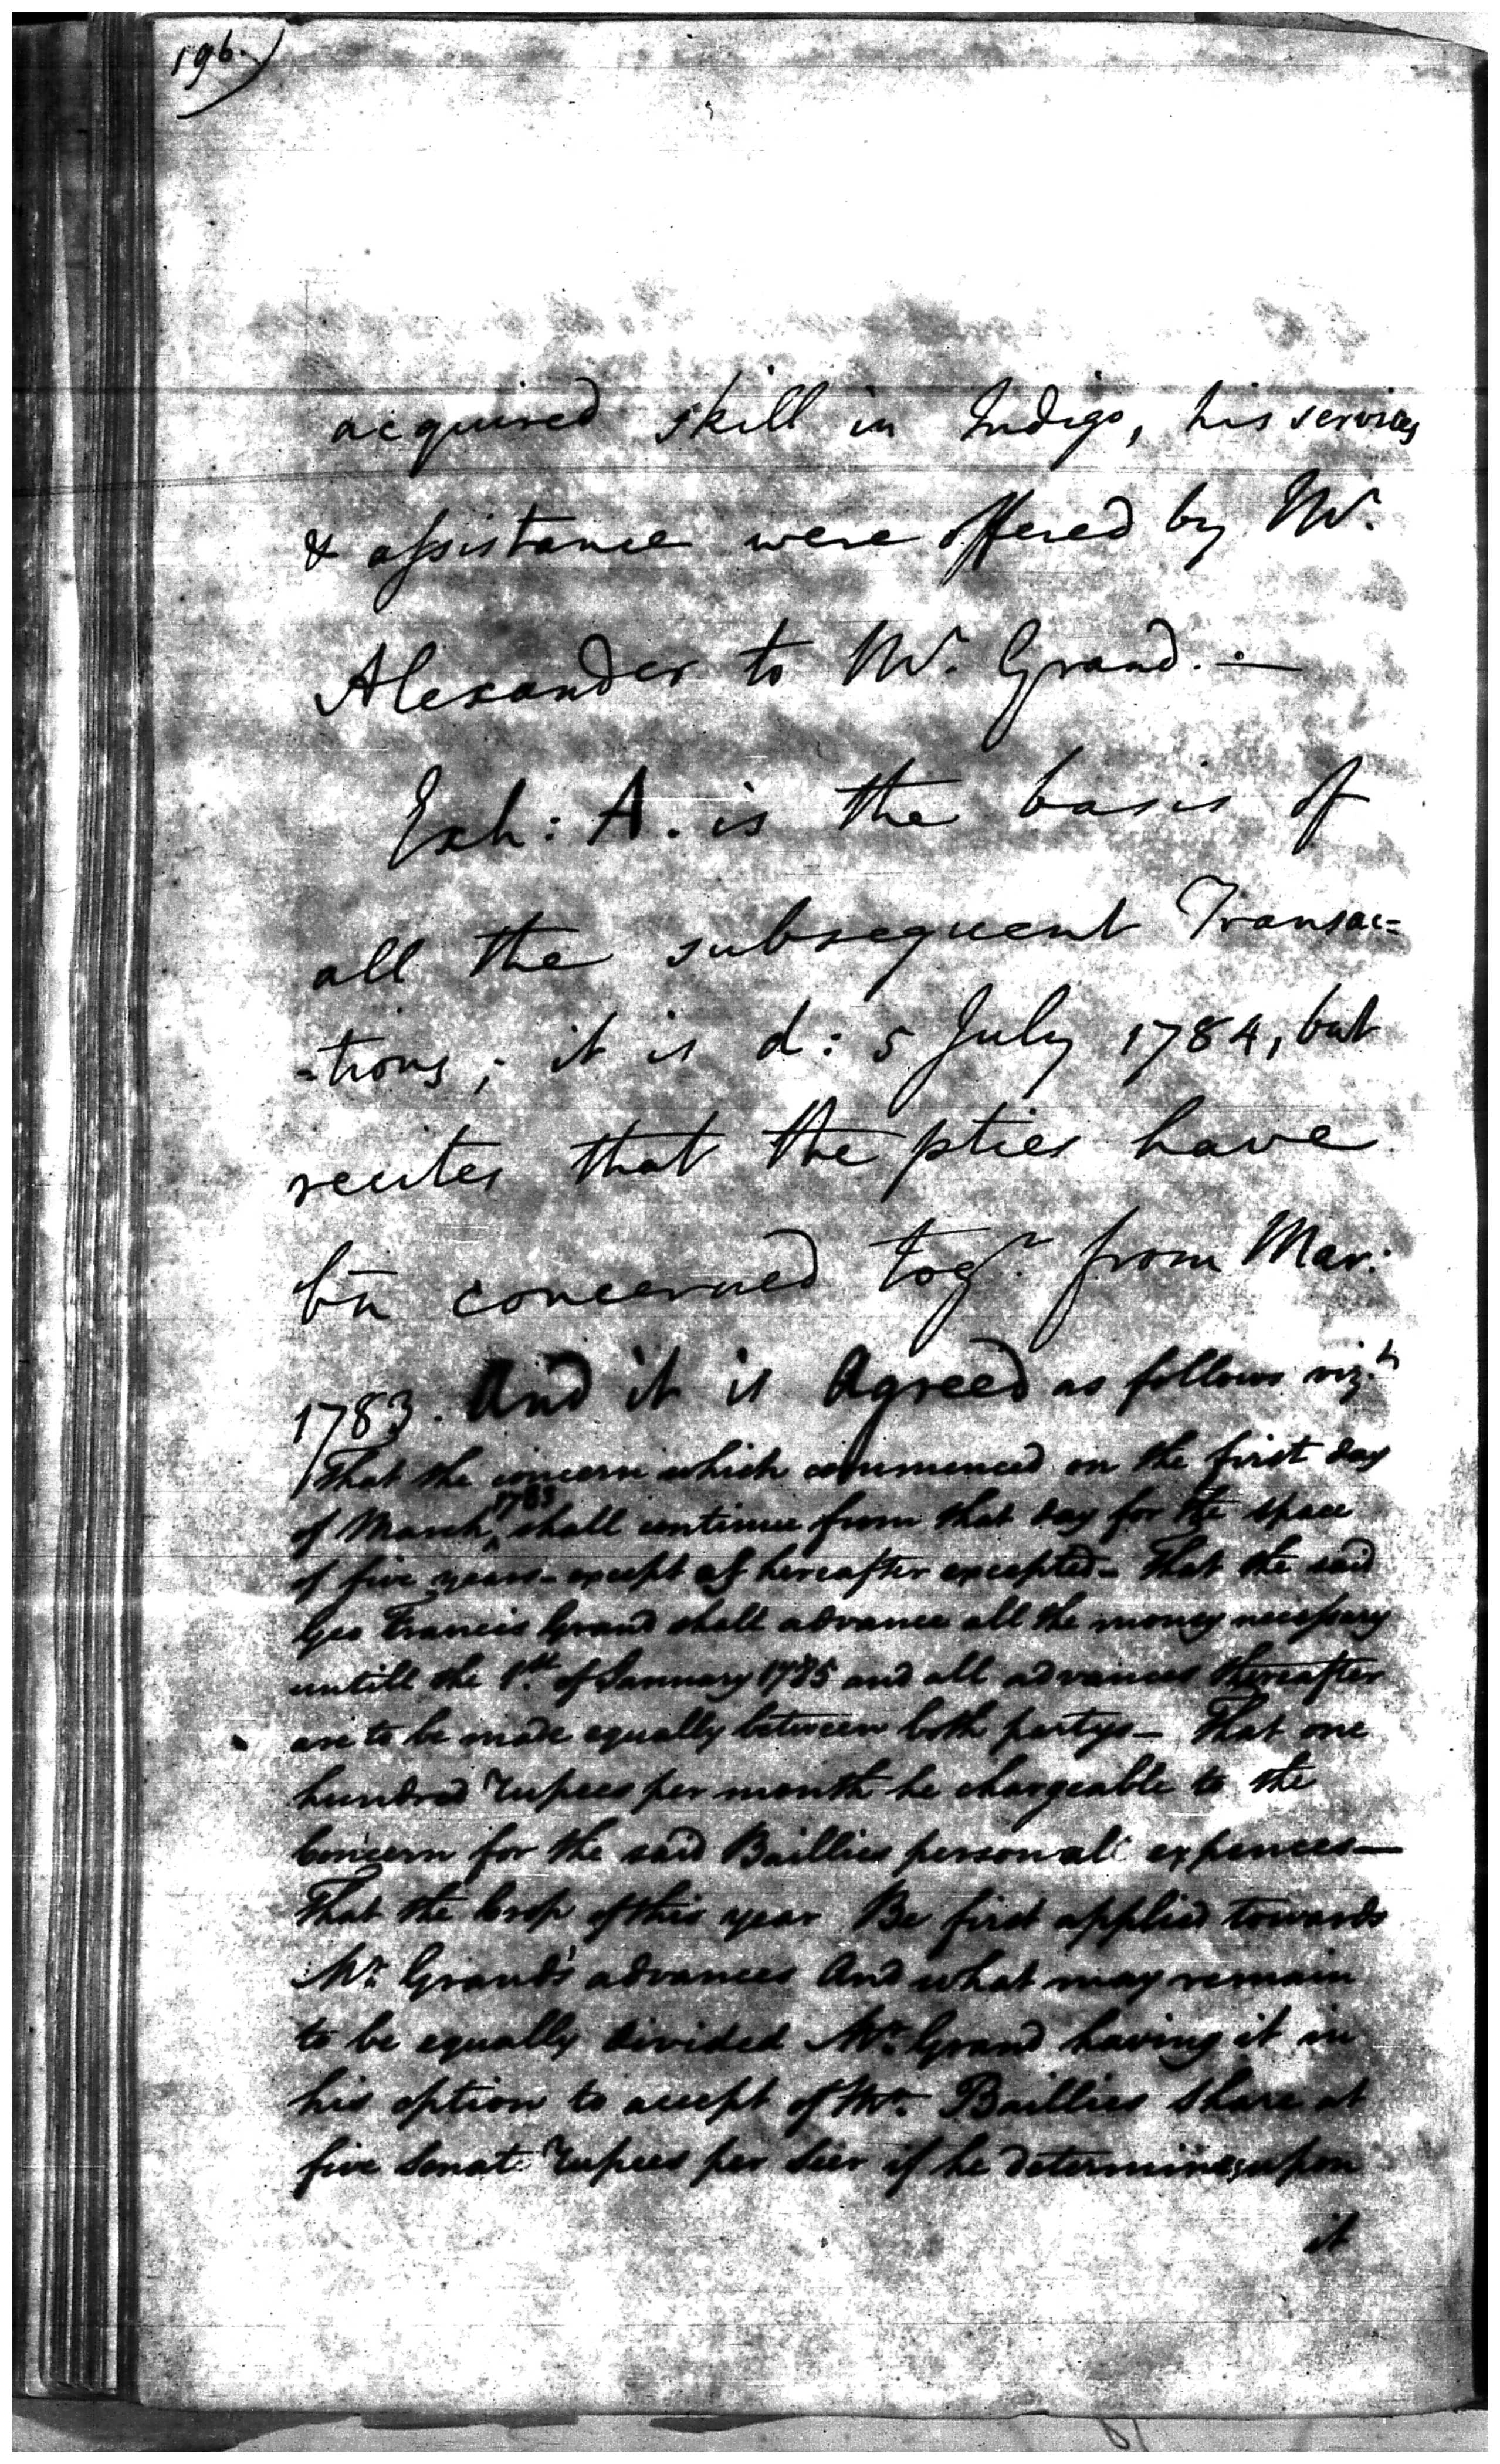 196.)
acquired skill in Indigo, his services
& assistance were offered by Mr.
Alexander to Mr. Grand. —
Exh: A. is the basis of
all the subsequent Transac=
=tions; it is d: 5 July 1784, but
recites that the pties have
bn concerned togr. from Mar:
1783. And it is Agreed as follows vizt.
That the concern which commenced on the first day
of March, 1783 shall continue from that day for the space
of five years - except as hereafter excepted - That the said
Geo Francis Grand shall advance all the money necessary
untill the 1st. of January 1785 and all advances thereafter
are to be made equally between both partys - That one
hundred rupees per month be chargeable to the
Concern for the said Baillies personal expences —
That the Crop of this year Be first applied towards
Mr. Grand's advances And what may remain
to be equally divided Mr. Grand having it in
his option to accept of Mr. Baillies Share at
five Sonat Rupees per Seer if he determines upon
it